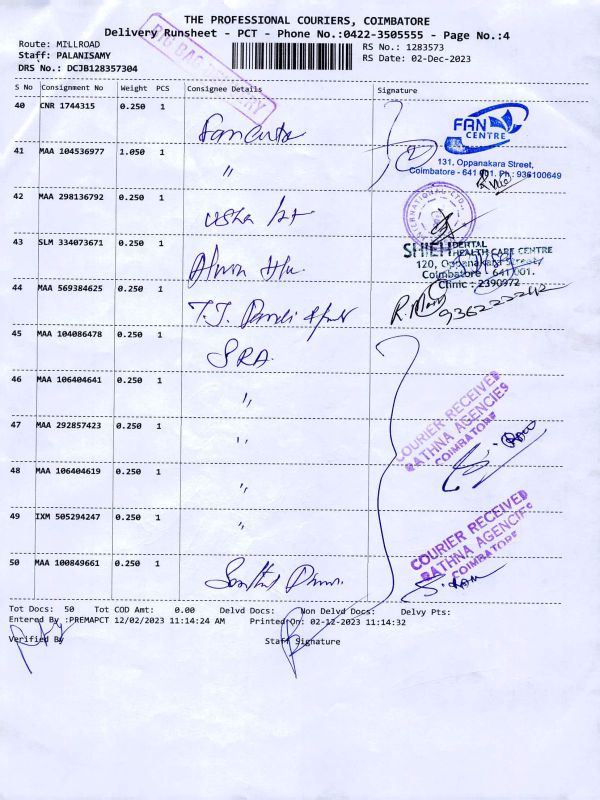 THE PROFESSIONAL COURIERS, COIMBATORE
Delivery Runsheet - PCT - Phone No.:0422-3505555 - Page No.:4
Route: MILLROAD
RS No.: 1283573
Staff: PALANISAMY
RS Date: 02-Dec-2023
DRS No.: DCJB128357304
S No Consignment No Weight PCS Consignee Details Signature
40 CNR 1744315 0.250 1
FAN CENTRE
131, Oppanakara Street,
Coimbatore - 641 001. Ph : 936100649
41 MAA 104536977 1.050 1 "
42 MAA 298136792 0.250 1 Usha Int
INTERNATIONAL LTD.
43 SLM 334073671 0.250 1
DENTAL
HEALTH CARE CENTRE
120, Oppanakara Street
Coimbatore - 641 001.
Clinic : 2390972
44 MAA 569384625 0.250 1
9362222242
45 MAA 104086478 0.250 1 SRA.
46 MAA 106404641 0.250 1 "
COURIER RECEIVED
RATHNA AGENCIES
COIMBATORE
47 MAA 292857423 0.250 1 "
48 MAA 106404619 0.250 1 "
49 IXM 505294247 0.250 1 "
COURIER RECEIVED
RATHNA AGENCIES
COIMBATORE
50 MAA 100849661 0.250 1
Tot Docs: 50 Tot COD Amt: 0.00 Delvd Docs: Non Delvd Docs: Delvy Pts:
Entered By :PREMAPCT 12/02/2023 11:14:24 AM Printed On: 02-12-2023 11:14:32
Verified By Staff Signature